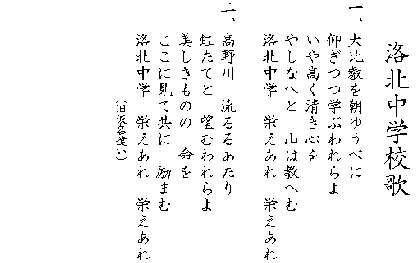 洛北中学校歌
一、大比叡を朝ゆうべに
仰ぎつつ学ぶわれらよ
いや高く清き心を
やしなへと 山は教へむ
洛北中学 栄えあれ 栄えあれ
二、高野川 流るるあたり
虹たてと 望むわれらよ
美しきものの 命を
ここに見て共に 励まむ
洛北中学 栄えあれ 栄えあれ